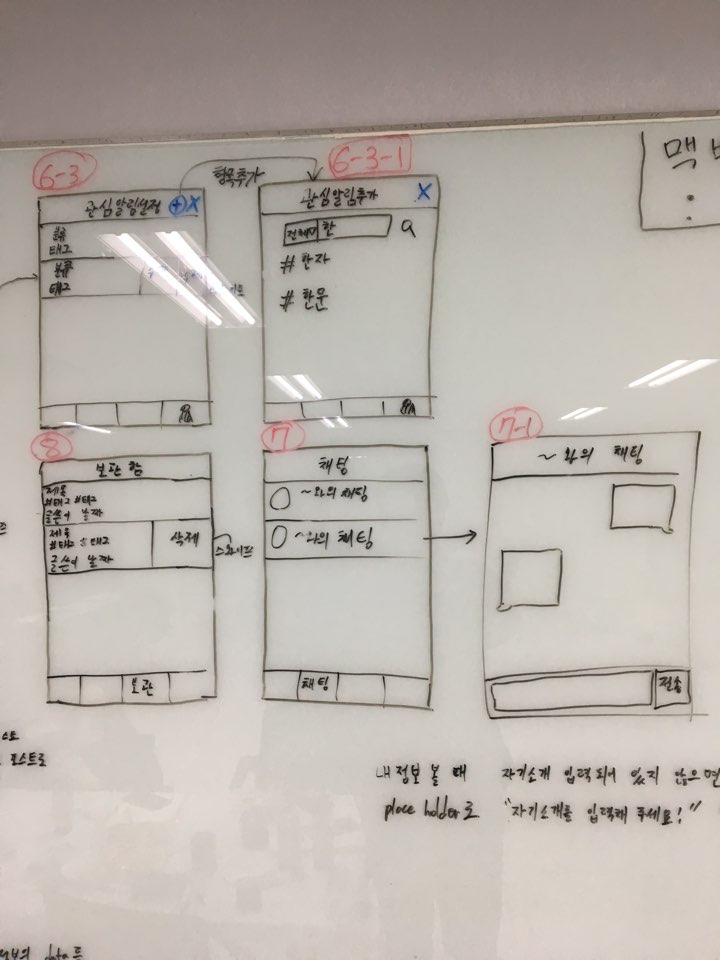 6-3
항목추가
6-3-1
관심알림설정 + X
분류
태그
분류
태그
관심알림추가 X
전체 한
# 한자
# 한문
맥
8
보관함
제목
#태그 #태그
글쓴이 날짜
제목
#태그 #태그
글쓴이 날짜
삭제
스와이프
보관
7
채팅
~와의 채팅
~와의 채팅
채팅
7-1
~와의 채팅
전송
포스트로
내 정보 볼 때 자기소개 입력되어 있지 않으면
place holder로 "자기소개를 입력해 주세요!"
data